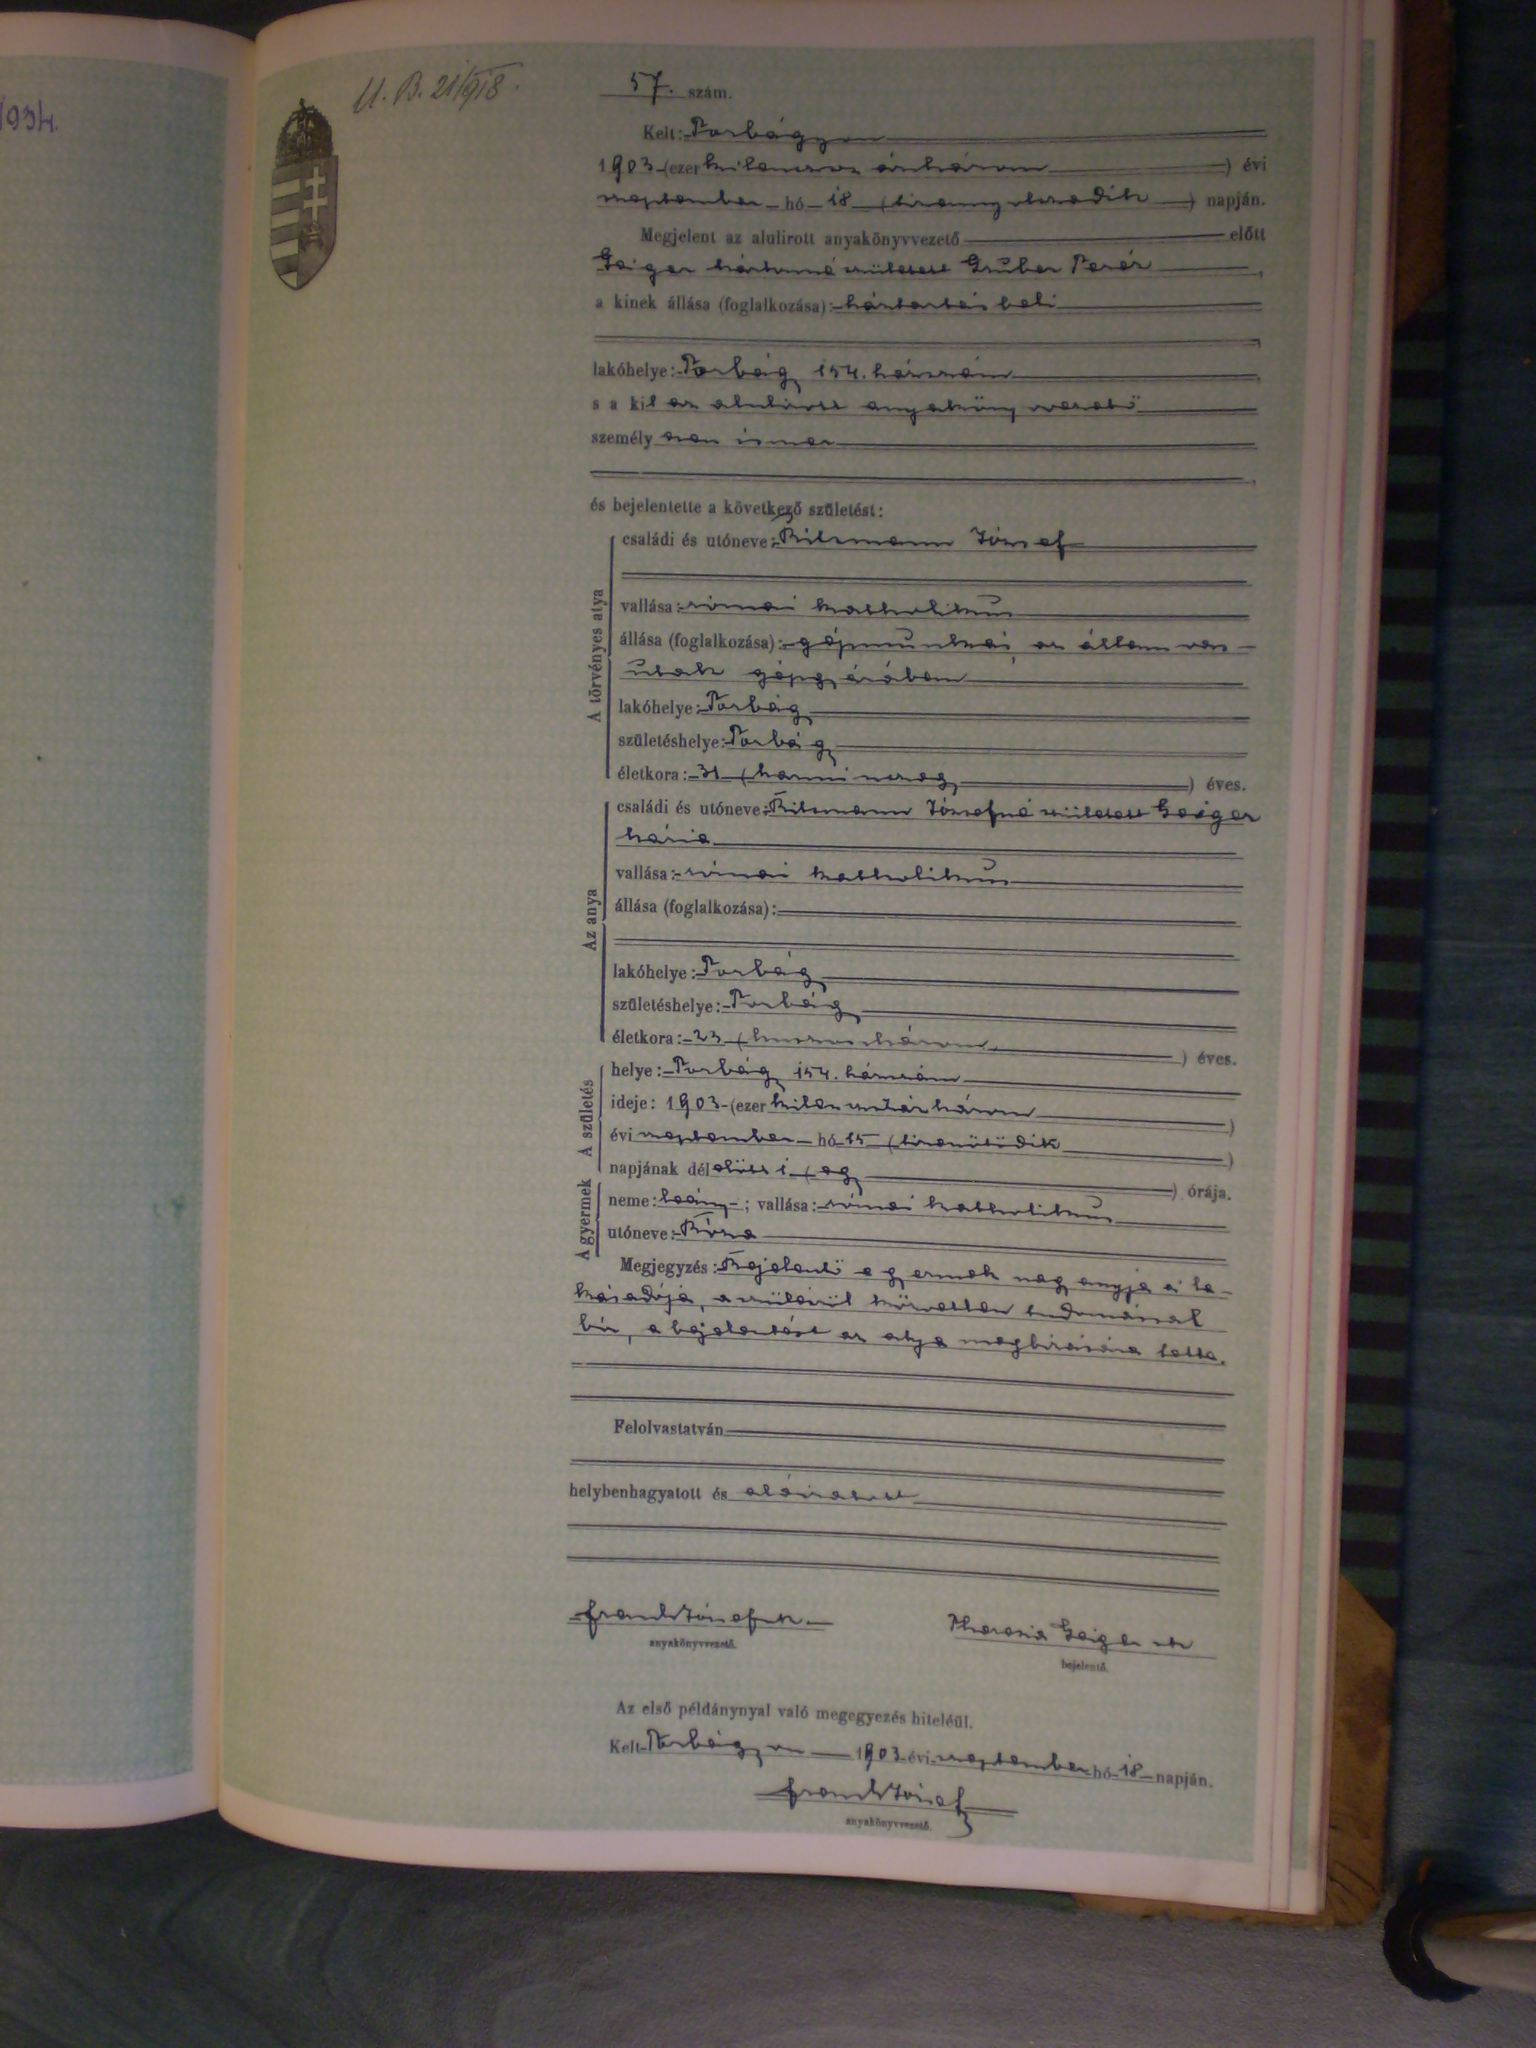 1934.
U. B. 21/918.
57. szám.
Kelt: Torbágyon
1903 (ezer kilencszáz három) évi
szeptember hó 18 (tizennyolczadik) napján.
Megjelent az alulirott anyakönyvvezető előtt
Geiger született Gruber Teréz,
a kinek állása (foglalkozása): háztartásbeli
lakóhelye: Torbágy 154. házszám
s a kit az alulirott anyakönyvvezető
személyesen ismer
és bejelentette a következő születést:
A törvényes atya
családi és utóneve: József
vallása: római katholikus
állása (foglalkozása): gépmunkás, az állam vas-
utak gépgyárában
lakóhelye: Torbágy
születéshelye: Torbágy
életkora: 31 (harminczegy) éves.
Az anya
családi és utóneve: Józsefné született Geiger
Mária
vallása: római katholikus
állása (foglalkozása):
lakóhelye: Torbágy
születéshelye: Torbágy
életkora: 23 (huszonhárom) éves.
A születés
helye: Torbágy 154. házszám
ideje: 1903 (ezer kilenczszáz három)
évi szeptember hó 15 (tizenötödik)
napjának délelőtt 1 (egy) órája.
A gyermek
neme: leány; vallása: római katholikus
utóneve: Róza
Megjegyzés: Bejelentő a gyermek nagyanyja és la-
kásadója, a szülésről közvetlen tudomással
bír, a bejelentést az atya megbízására tette.
Felolvastatván
helybenhagyatott és aláiratott
Frank József sk.
anyakönyvvezető.
Theresia Geiger sk
bejelentő.
Az első példánynyal való megegyezés hiteléül.
Kelt Torbágyon 1903 évi szeptember hó 18 napján.
Frank József
anyakönyvvezető.